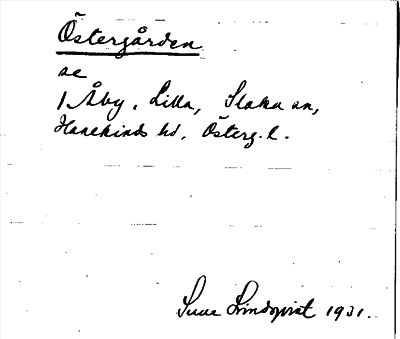 Östergården
se
1 Åby, Lilla, Slaka sn,
Hanekinds hd, Österg. l.
Sune Lindqvist 1931.